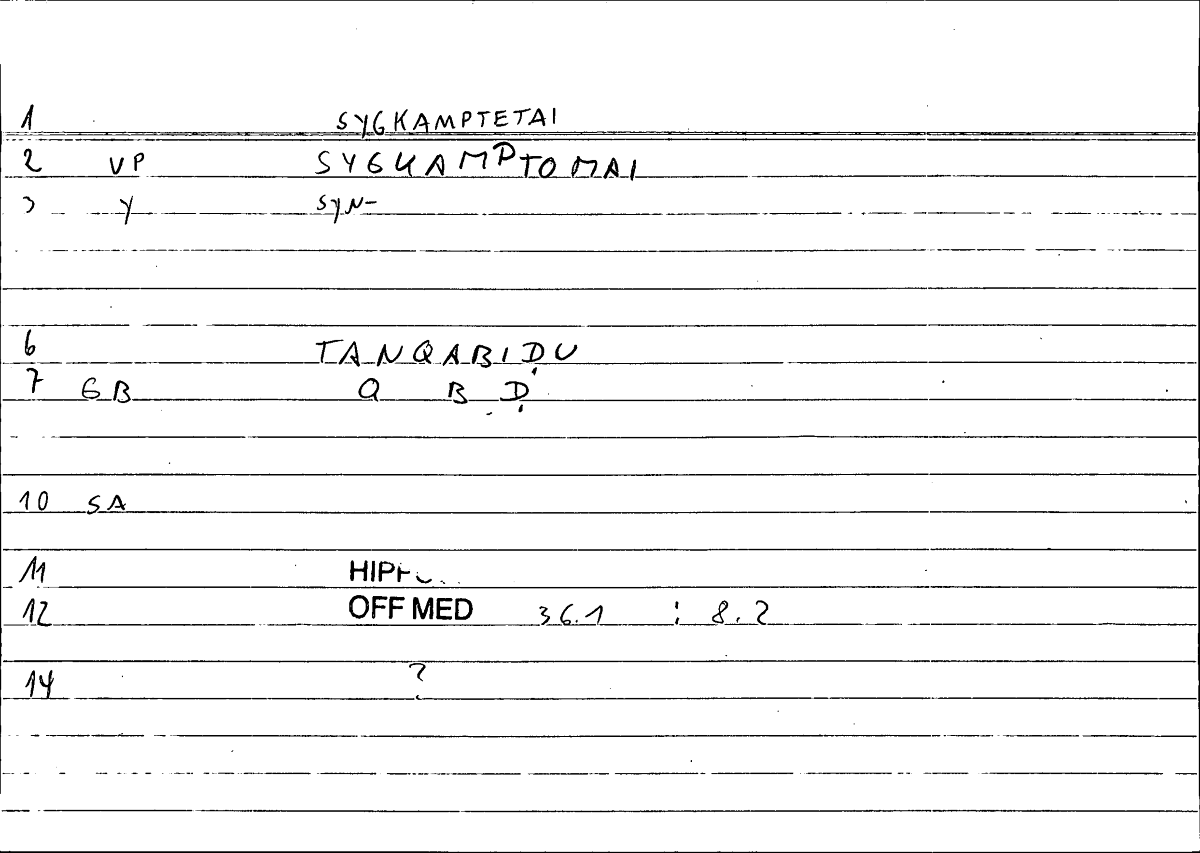 1 SYGKAMPTETAI
2 VP SYGKAMPTOMAI
3 Y SYN-
6 TANQABIḌU
7 GB Q B Ḍ
10 SA
11
12 OFF MED 36.1 : 8.2
14 ?